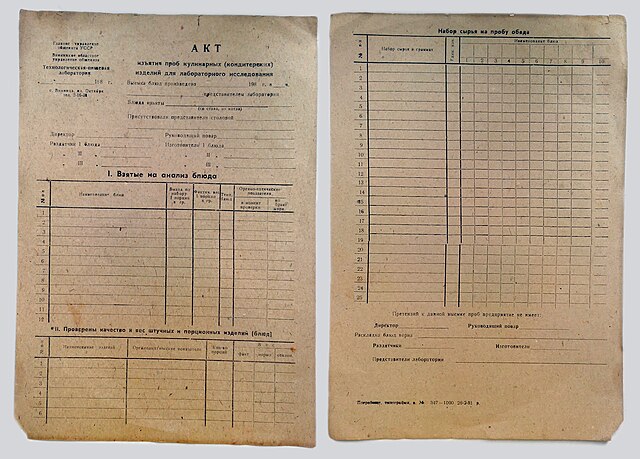 Главное управление
общепита УССР
Винницкое областное
управление общепита
Технологическая-пищевая
лаборатория
198 г.
г. Винница, ул. Октября
тел. 2-16-38
АКТ
изъятия проб кулинарных (кондитерских)
изделий для лабораторного исследования
Выемка блюд произведена 198 г. в ч.
представителем лаборатории
Блюда изъяты
Присутствовали представители столовой
Директор Руководящий повар
Раздатчик I блюда Изготовители I блюда
II II
III III
I. Взятые на анализ блюда
№ п п
Наименование блюд
Выход по набору 1 порции в гр.
в момент проверки
1
2
3
4
5
6
7
8
9
10
11
12
II. Проверены качество и вес штучных и порционных изделий (блюд)
Наименование изделий
Органолептические показатели
Кол-во порций
Вес
факт норма отклон.
1
2
3
4
5
6
Набор сырья на пробу обеда
№ п п
Набор сырья в граммах
Наименование блюд
1 2 3 4 5 6 7 8 9 10
1
2
3
4
5
6
7
8
9
10
11
12
13
14
15
16
17
18
19
20
21
22
23
24
25
Претензий к данной выемке проб предприятие не имеет:
Директор Руководящий повар
Раскладку блюд верна
Раздатчики Изготовители
Представители лаборатории
типография, з. № 347—1000 26-2-81 р.